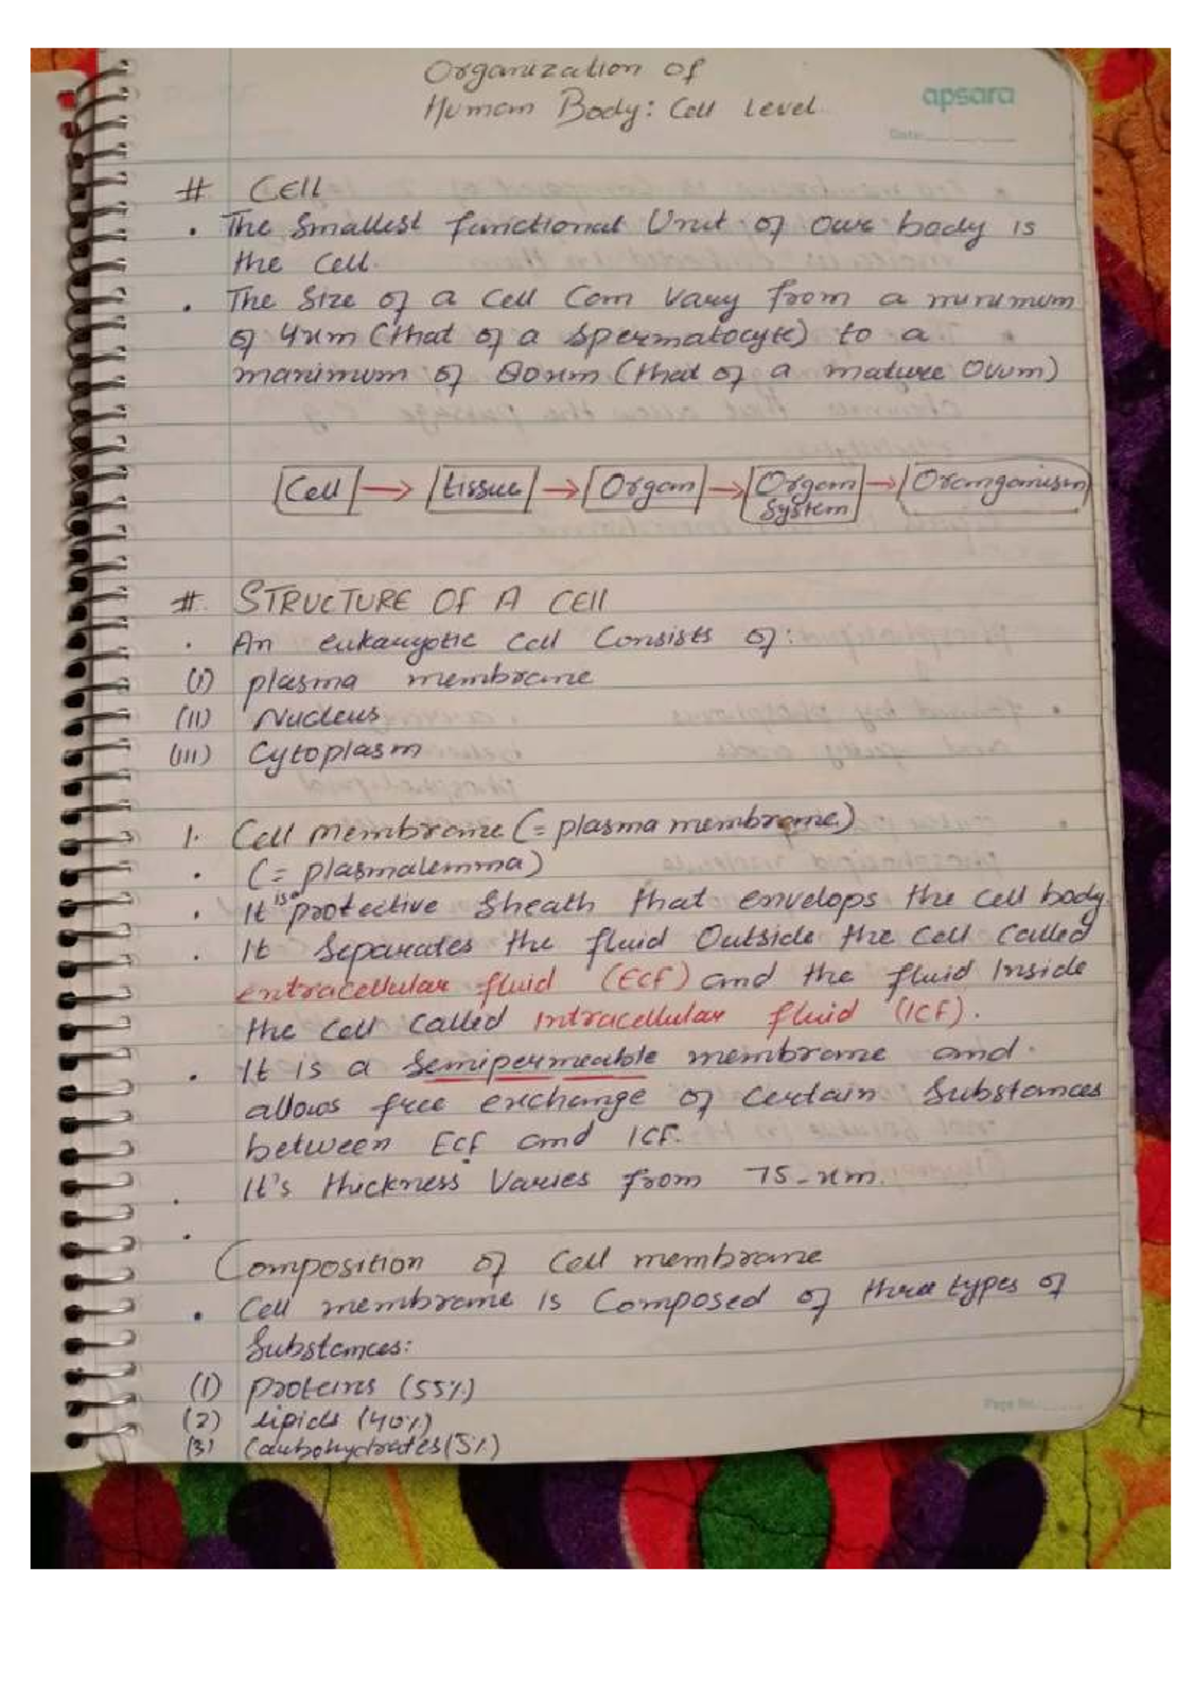 Organization of
Human Body: Cell Level
apsara
Date:
# CEll
• The Smallest functional Unit of Our body is
the Cell.
• The Size of a Cell Can Vary from a minimum
of 4um (that of a Spermatocyte) to a
maximum of 80um (that of a mature Ovum)
Cell → tissue → Organ → Organ System → Oranganism
# STRUCTURE OF A CEll
• An eukaryotic Cell Consists of:
(i) plasma membrane
(II) Nucleus
(III) Cytoplasm
1. Cell membrane (= plasma membrane)
• (= plasmalemma)
• It is a protective Sheath that envelops the cell body.
• It Separates the fluid Outside the Cell Called
extracellular fluid (ECF) and the fluid Inside
the Cell Called Intracellular fluid (ICF).
• It is a Semipermeable membrane and
allows free exchange of Certain Substances
between ECF and ICF.
• It's thickness Varies from 75-um.
•
Composition of Cell membrane
• Cell membrane is Composed of three types of
Substances:
(1) proteins (55%)
(2) lipids (40%)
(3) Carbohydrates (5%)
Page No.: